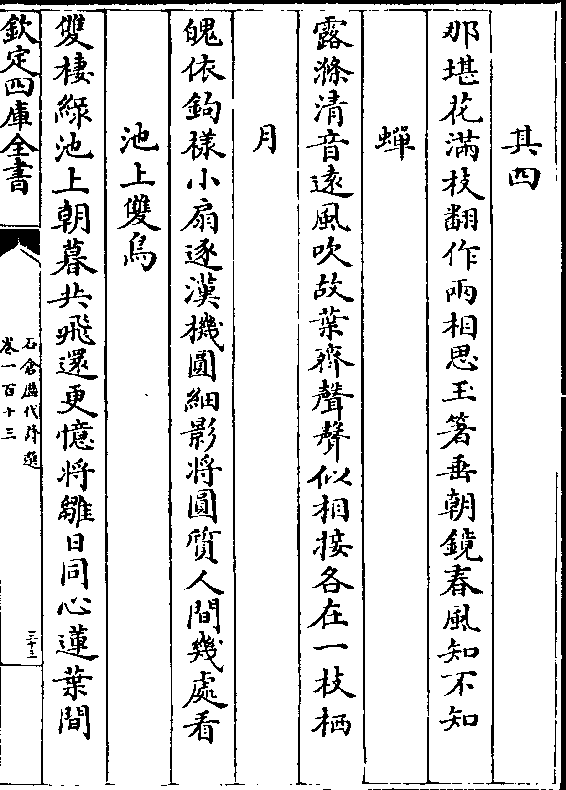 其四
那堪花滿枝翻作兩相思玉箸垂朝鏡春風知不知
蟬
露滌清音遠風吹故葉齊聲聲似相接各在一枝栖
月
魄依鈎樣小扇逐漢機圓細影將圓質人間幾處看
池上雙鳥
雙棲綠池上朝暮共飛還更憶將雛日同心蓮葉間
欽定四庫全書
石倉歷代詩選
卷一百十三
三十三